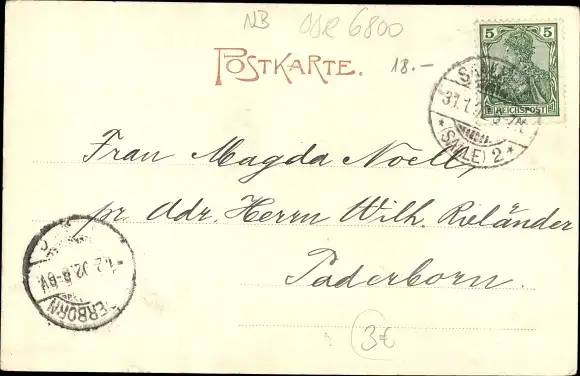 NB
6800
POSTKARTE.
18.-
5 5
REICHSPOST
31.1.
* (SAALE) 2 *
Frau Magda Noell,
pr Adr. Herrn Wilh. Rieländer
Paderborn.
1.2.02.8-9V.
3€